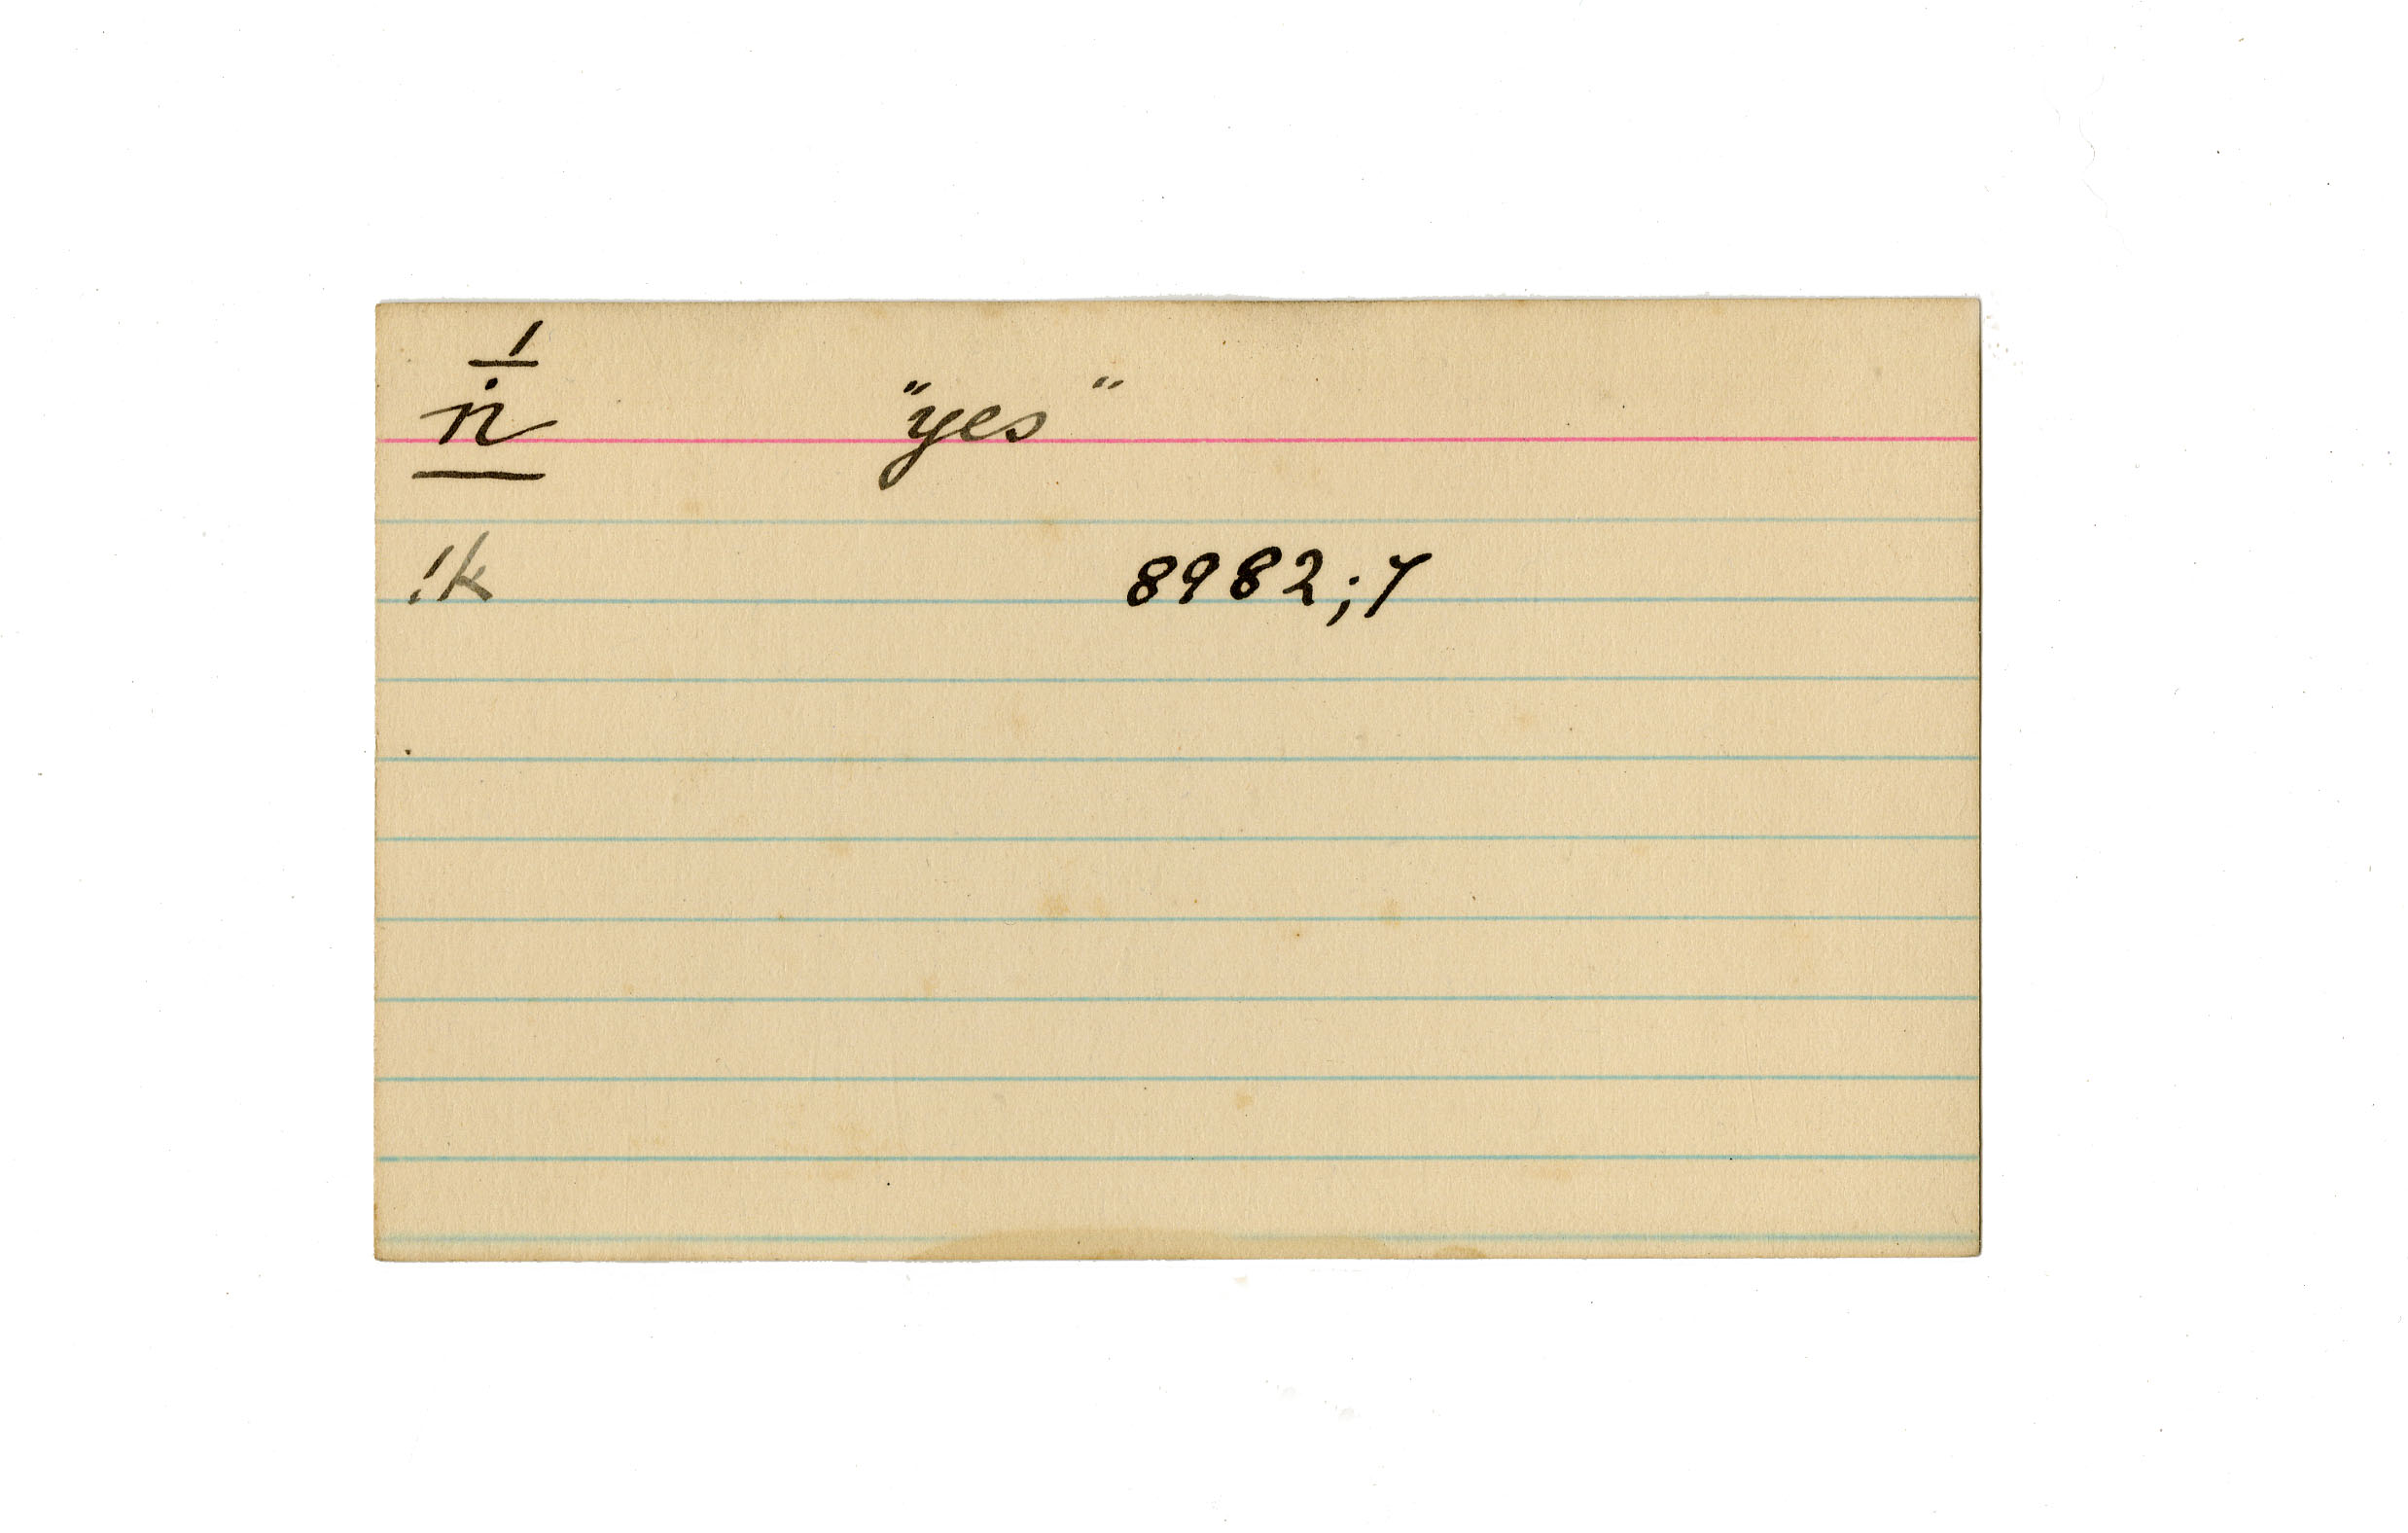 ṅ̄́ "yes"
!k 8982;7